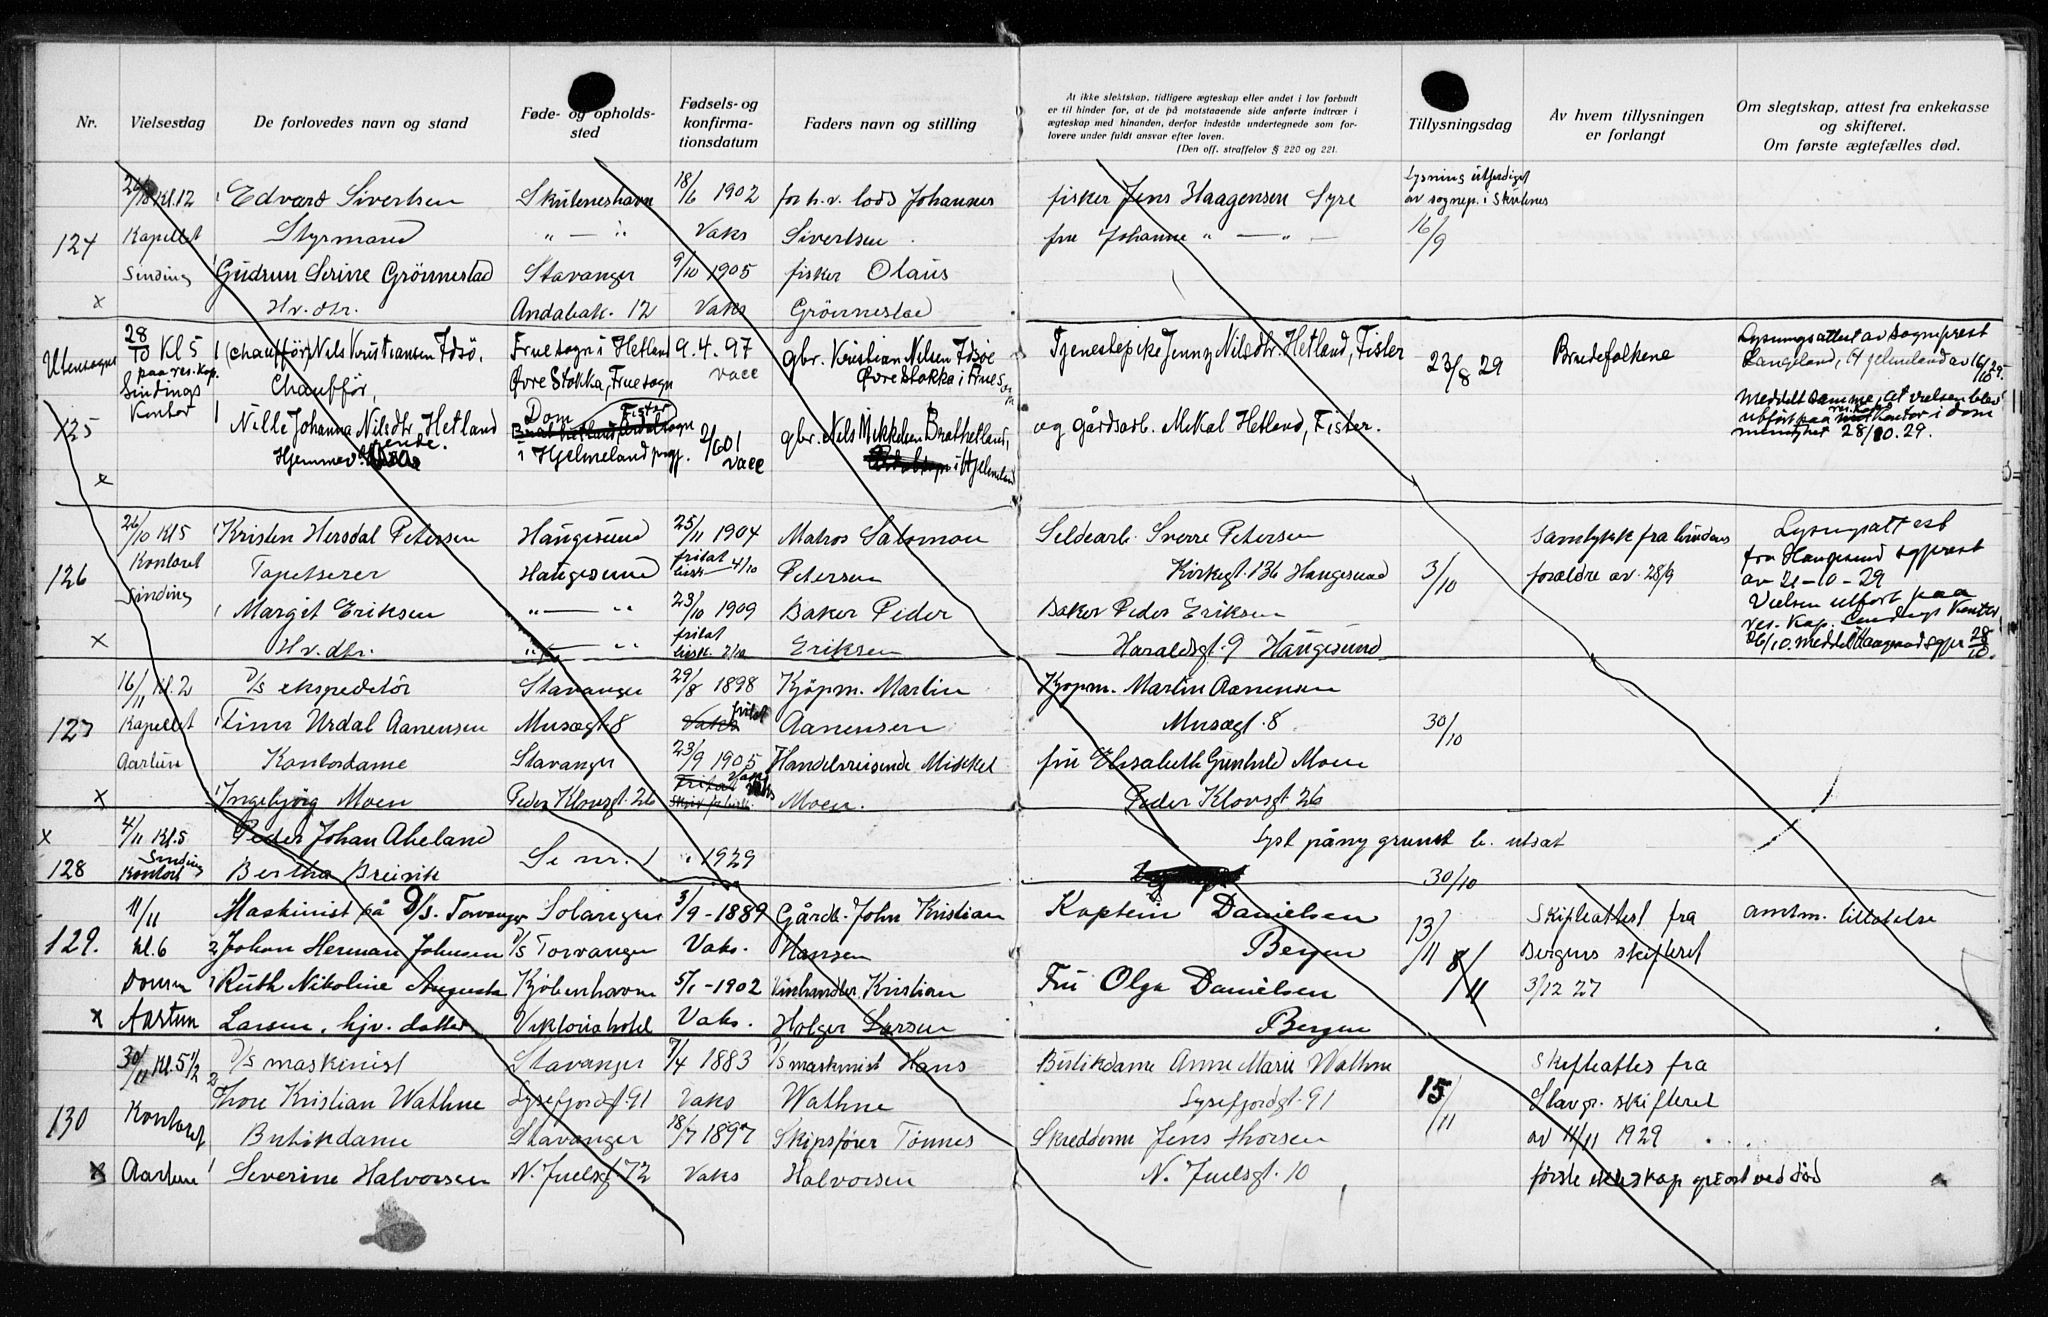 Nr.
Vielsesdag
De forlovedes navn og stand
Føde- og opholds-
sted
Fødsels- og
konfirma-
tionsdatum
Faders navn og stilling
At ikke slektskap, tidligere ægteskap eller andet i lov forbudt
er til hinder for, at de på motstaaende side anførte indtrær i
ægteskap med hinanden, derfor indestår undertegnede som for-
lovere under fuldt ansvar efter loven.
(Den off. straffelov § 220 og 221.
Tillysningsdag
Av hvem tillysningen
er forlangt
Om slegtskap, attest fra enkekasse
og skifteret.
Om første ægtefælles død.
Kl 12 Edvard Sivertsen Skudeneshavn 18/6 1902 forh.v. lods Johannes fisker Jens Haagensen Syre
124 Kapellet Styrmand " — " Vaks Sivertsen fru Johanne " — " — 16/9
Sinding Gudrun Serine Grönnestad Stavanger 9/10 1905 fisker Olaus
x Hv. dtr. Andabak. 12 Vaks Grönnestad
Utensogns 28/10 Kl 5 (chauffør) Nils Kristiansen Idsö, Fruesogn i Hetland 9.4.97 gbr. Kristian Nilsen Idsöe Tjenestepike Jenny Nilsdtr. Hetland, Fister 23/8 29 Brudefolkene Lysningsattest av Sogneprest
paa res. kap. Chauffør, Øvre Stokka, Fruesogn vacc Øvre Stokka i Fruesogn Langeland, Hjelmeland av 16/10 29.
Sindings
Kontor
125 Nille Johanna Nilsdtr. Hetland Dom Fister gbr. Nils Mikkelsen Brathetland, og gårdsarb. Mikal Hetland, Fister. Meddelt samme, at vielsen blev
Hjemmev. i Hjelmeland pgj. vacc i Hjelmeland utført paa res. kap. Kontor i dom
menighet 28/10.29.
x
26/10 Kl 5 Kristen Hersdal Petersen Haugesund 25/11 1904 Matros Salomon Sildearb. Sverre Petersen Samtykke fra brudens Lysingsattest
126 Kontoret Tapetserer Haugesund 4/10 Petersen Kirkegt. 136 Haugesund 3/10 forældre av 28/9 fra Haugesund sogneprest
Sinding Margit Eriksen " — " 23/10 1909 Baker Peder Baker Peder Eriksen av 21-10-29
x Hv. dtr. " — " Eriksen Haraldsgt. 9 Haugesund Vielsen utført paa
res. kap. Sindings Kontor
26/10. meddelt Haugesund sgpr 28/10.
16/11 kl. 2 D/S ekspeditør Stavanger 29/8 1898 Kjöpm. Martin Kjöpm. Martin Aanensen
127 Kapellet Finn Urdal Aanensen Musegt. 8 Vaks fritat Aanensen Musegt. 8 30/10
Aartun Kontordame Stavanger 23/9 1905 Handelsreisende Mikkel fru Elisabeth Gunhild Moen
x Ingebjörg Moen Peder Klowsgt. 26 Moen. Peder Klowsgt 26
x 4/11 Kl. 5 Peder Johan Abeland Se nr. 1 1929 Lyst påny grundet b. utsat
128 Sinding Kontoret Bertha Breivik 30/10
11/11 Maskinist på D/S. Torvanger Gårdb. John Kristian Kaptein Danielsen 13/11 Skifteattest fra amtm. tillatelse
3/9 - 1889
129. kl. 6 2 Johan Herman Johnsen D/S Torvanger Vaks. Hansen Bergen 8/11 Bergens skifteret
Domen 1 Ruth Nikoline Augusta Kjöbenhavn 5/1 - 1902 Vinhandler Kristian Fru Olga Danielsen 3/12 27
x Aartun Larsen, hjv. datter Viktoriahotel Vaks. Holger Larsen Bergen
30/11 kl. 5 1/2 D/S maskinist Stavanger 7/4 1883 D/S maskinist Hans Butikdame Anne Marie Wathne Skifteattes fra
2 Thore Kristian Wathne Lysefjordgt. 91 Vaks Wathne Lysefjordgt. 91 15/11 Stavgr. skifteret
130 Kontoret Butikdame Stavanger 18/7 1897 Skipsfører Tönnes Skreddern Jens Thorsen av 11/11 1929
x Aartun 1 Severine Halvorsen N. Juelsgt. 72 Vaks Halvorsen N. Juelsgt. 10 første ekteskap opløst ved död